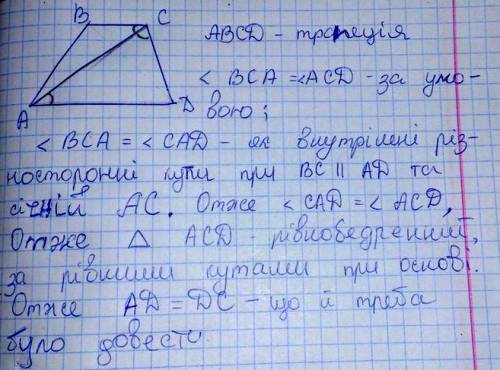 B C
A D
ABCD - трапеція
< BCA =<ACD - за умо-
вою;
< BCA = < CAD - як внутрішні різ-
носторонні кути при BC || AD та
січній AC. Отже < CAD =< ACD,
Отже △ ACD - рівнобедренний,
за рівними кутами при основі.
Отже AD = DC - що й треба
було довести